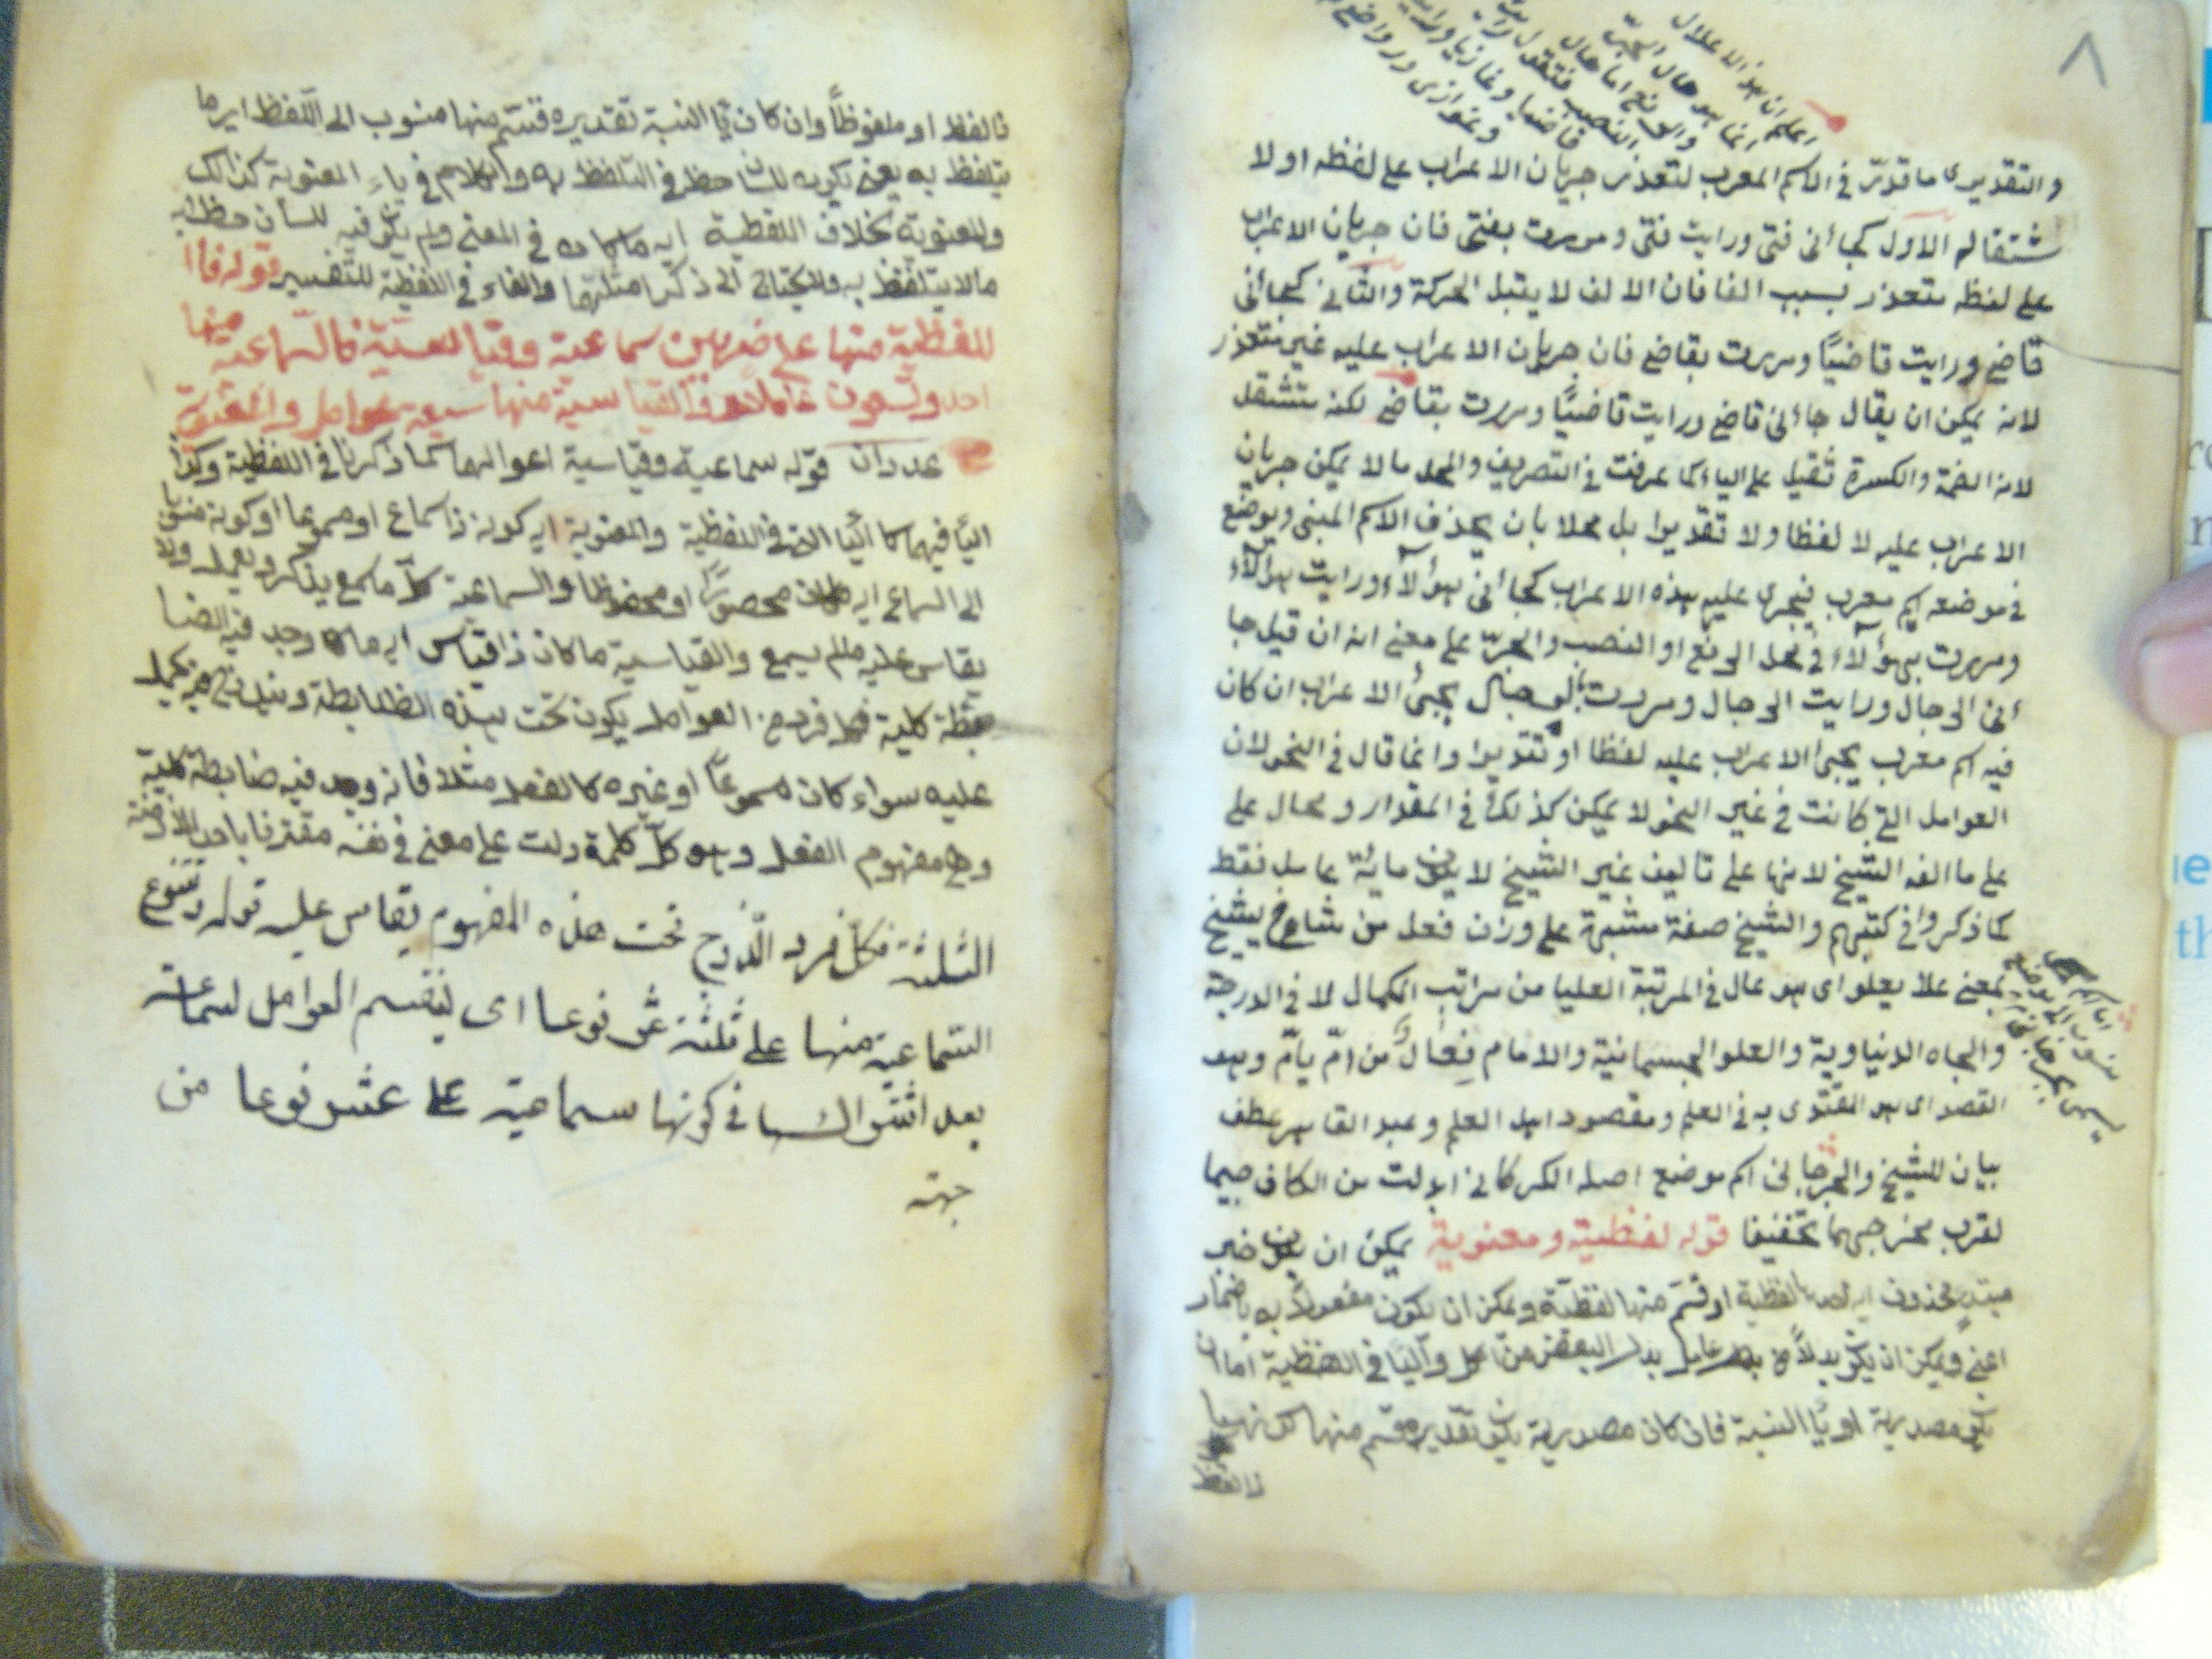 ٨
اعلم ان هذا الاعلال
انما هو حال الجر
والرفع اما حال
النصب فتقول رايت
قاضيا وغازيا
والتقديرى ما قدر في الاسم المعرب لتعذر جريان الاعراب على لفظه او لا
ستثقاله الاول كجائنى فتى ورايت فتى ومررت بفتى فان جريان الاعراب
على لفظه متعذر بسبب الفا فان الالف لا يقبل الحركة والثانى كجائنى
قاض ورايت قاضيًا ومررت بقاض فان جريان الاعراب عليه غير متعذر
لانه يمكن ان يقال جائنى قاض ورايت قاضيًا ومررت بقاض لكنه ستثقل
لانه الضمة والكسرة ثقيل على الياء كما عرفت في التصريف والمحل ما لا يمكن جريان
الاعراب عليه لا لفظا ولا تقديرا بل محلا بان يحذف الاسم المبنى ويوضع
في موضعه اسم معرب فيجرى عليه هذه الاعراب كجائنى هؤلآء ورايت هؤلآء
ومررت بهؤلآء في محل الرفع او النصب والجر على معنى انه ان قيل جا
ئنى الرجال ورايت الرجال ومررت بالرجال يجئ الاعراب ان كان
فيه اسم معرب يجئ الاعراب عليه لفظا او تقديرا وانما قال في النحو لان
العوامل التى كانت في غير النحو لا يمكن كذلك في المقدار و محال على
على ما الفه الشيخ لانها على تاليف غير الشيخ لا يكون ماية عامل فقط
كما ذكروا في كتبهم والشيخ صفة مشبهة على وزن فعل من شاخ يشيخ
بمعنى علا يعلو اى هو عال في المرتبة العليا من مراتب الكمال لا في الدرجة
والجاه الدنياوية والعلو الجسمانية والامام فِعالٌ من امّ يامّ وهو
القصد اى هو المقتدى به في العلم ومقصود اهل العلم وعبد القاهر عطف
بيان للشيخ والجرجانى اسم موضع اصله الكركانى ابدلت من الكاف جيما
لقرب مخرجهما تخفيفا قوله لفظية ومعنوية يمكن ان يكون خبر
مبتدٍ محذوف لفظية او قسم منها لفظية ويمكن ان يكون مفعولا به باضمار
اعنى ويمكن ان يكون بدلًا من عامل بدل البعض من الكل واليا في اللفظية اما ان
يكون مصدرية او ياً النسبة فان كان مصدرية يكون تقديره قسم منها
لا لفظ
فالفظ او ملفوظًا وان كان يا النسبة تقديره قسم منها منسوب الى اللفظ اى ما
يتلفظ به يعنى يكون للسان حظ في التلفظ به والكلام في ياء المعنوية كذالك
والمعنوية بخلاف اللفظية اى ما كان في المعنى ولم يكن فيه للسان حظ
مالا يتلفظ به ولا يحتاج الى ذكر امثلتها والفاء في اللفظية للتفسير قوله فا
للفظية منها على ضربين سماعية وقياسية فالسماعية منها
احد وتسعون عاملا والقياسية منها سبعة عوامل والمعنوية
عددان قوله سماعية وقياسية كما ذكرنا في اللفظية وكذا
اليا فيهما كا اليا التى في اللفظية والمعنوية اى كونه ذا سماع او مسموعا او كونه منسوبا
الى السماعى اى كان محصورًا او محفوظا والسماعية كل ما سمع يذكر ويعمل ولا
يقاس عليه ما لم يسمع والقياسية ما كان ذا قياس اى ما وجد فيه الضا
بطة كلية فكل فرد من العوامل يكون تحت هذه الظابطة
عليه سواء كان مسموعًا او غيره كا لفعل مثلا فانه وجد فيه ضابطة كلية
وهى مفهوم الفعل وهو كلّ كلمة دلت على معنى في نفسه مقترنا باحد الازمنة
الثلثة فكل فرد اندرج تحت هذه المفهوم يقاس عليه قوله وتتنوع
السماعية منها على ثلثة عشر نوعا اى ينقسم العوامل لسماعية
بعد اشتراكها في كونها سماعية على عشر نوعا من
جهة